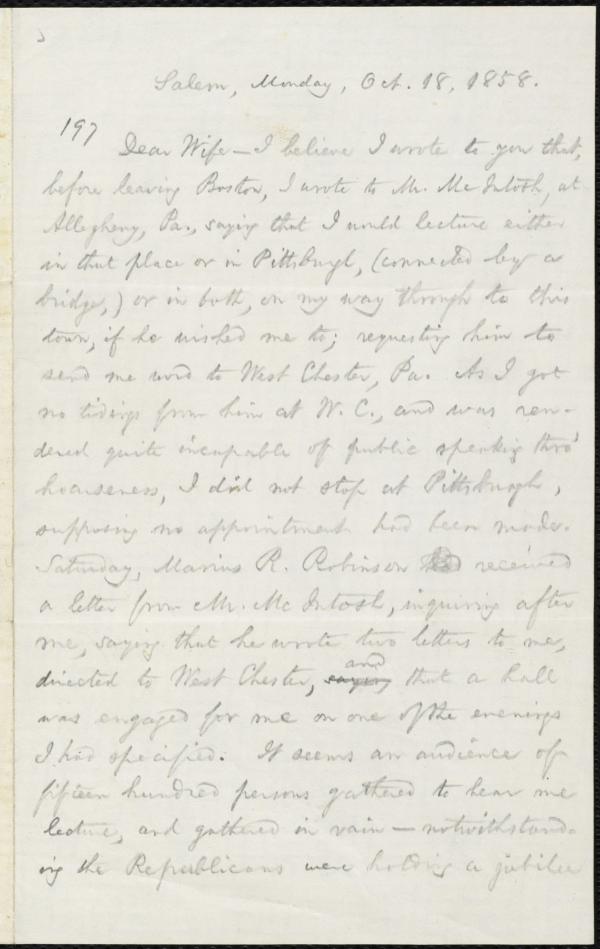 Salem, Monday, Oct. 18, 1858.
197
Dear Wife — I believe I wrote to you that,
before leaving Boston, I wrote to Mr. McIntosh, at
Allegheny, Pa., saying that I would lecture either
in that place or in Pittsburgh, (connected by a
bridge,) or in both, on my way through to this
town, if he wished me to; requesting him to
send me word to West Chester, Pa. As I got
no tidings from him at W. C., and was ren-
dered quite incapable of public speaking thro'
hoarseness, I did not stop at Pittsburgh,
supposing no appointment had been made.
Saturday, Marius R. Robinson received
a letter from Mr. McIntosh, inquiring after
me, saying that he wrote two letters to me,
directed to West Chester, saying and that a hall
was engaged for me on one of the evenings
I had specified. It seems an audience of
fifteen hundred persons gathered to hear me
lecture, and gathered in vain — notwithstand-
ing the Republicans were holding a jubilee